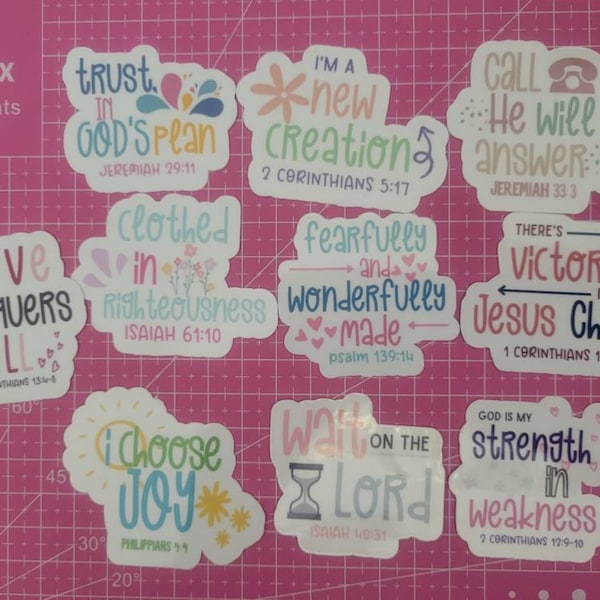 trust
in
God's plan
Jeremiah 29:11
I'm a
new
creation
2 Corinthians 5:17
Call
He will
answer
Jeremiah 33:3
clothed
in
righteousness
Isaiah 61:10
fearfully
and
wonderfully
made
psalm 139:14
There's
Jesus
1 Corinthians
i choose
JOY
Philippians 4:4
wait on the
Lord
Isaiah 40:31
God is my
strength
in
weakness
2 Corinthians 12:9-10
60°
45
30°
20°